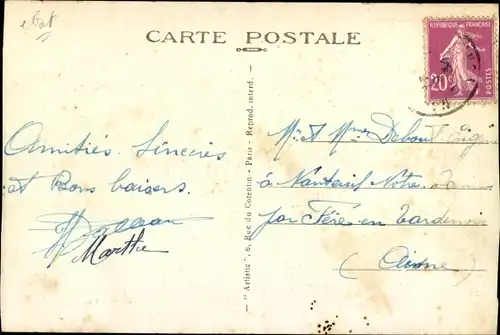 CARTE POSTALE
RÉPUBLIQUE FRANÇAISE
20c
POSTES
Amitiés Sincères
et Bons baisers.
Marthe
— "Artistic", 6, Rue du Cotentin - Paris - Reprod. interd. —
M. et Mme Debout
à Nanteuil Notre Dame
par Fère en Tardenois
(Aisne)